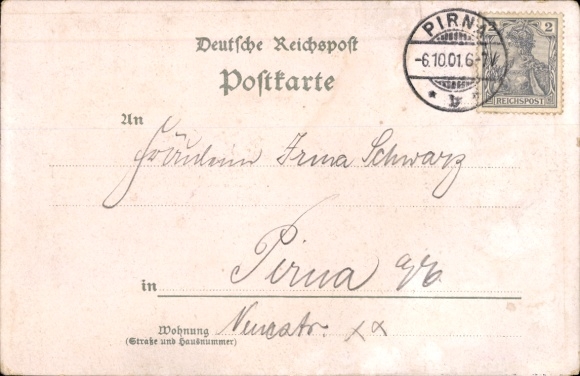 Deutsche Reichspost
Postkarte
PIRNA
-6.10.01.6-7V.
* b *
2
REICHSPOST
An
Fräulein Irma Schwarz
in Pirna a/E.
Wohnung
(Straße und Hausnummer)
xx